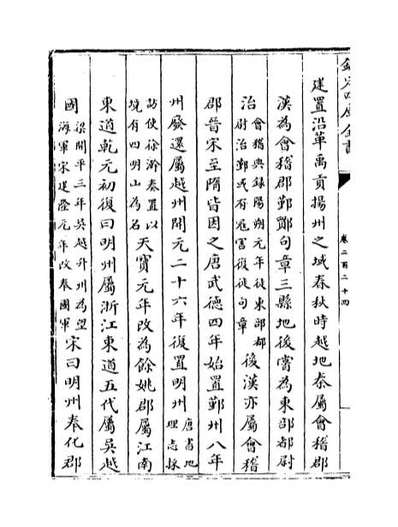 欽定四庫全書
卷二百二十四
建置沿革禹貢揚州之域春秋時越地秦屬會稽郡
漢為會稽郡鄞鄮句章三縣地後嘗為東部都尉
治會稽典録陽朔元年徙東部都
尉治鄞或有寇害復徙句章後漢亦屬會稽
郡晉宋至隋皆因之唐武德四年始置鄞州八年
州廢還屬越州開元二十六年復置明州唐書地
理志採
訪使徐澣奏置以
境有四明山為名天寶元年改為餘姚郡屬江南
東道乾元初復曰明州屬浙江東道五代屬吳越
國梁開平三年吳越升州為望
海軍宋建隆元年改奉國軍宋曰明州奉化郡